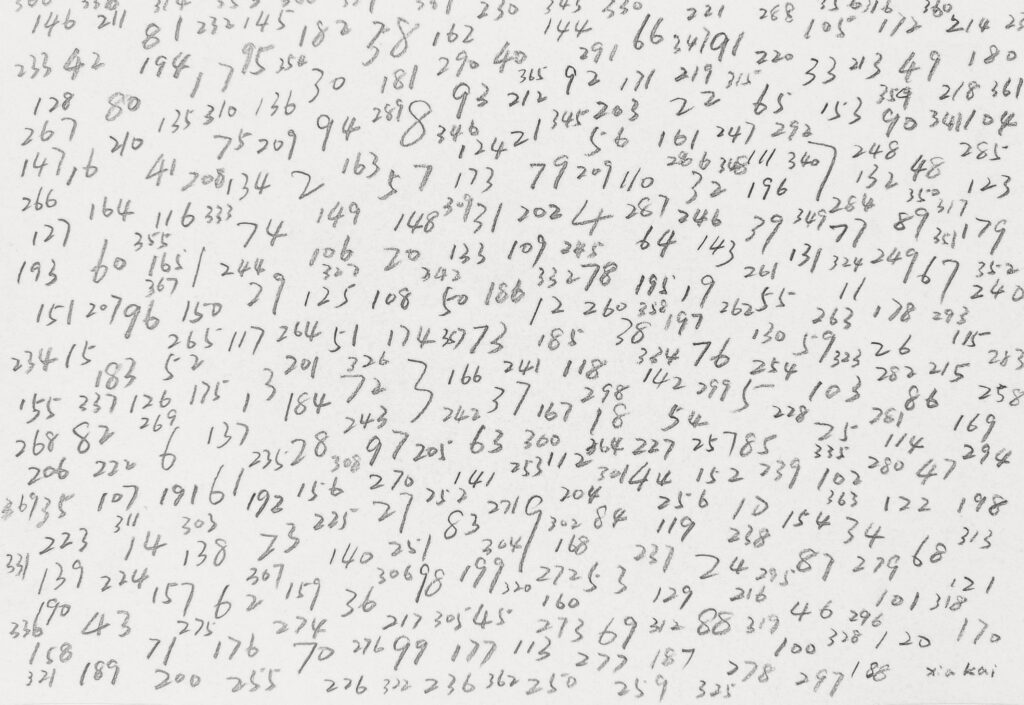 230 345 330 221 288 360
146 211 81 232 145 182 38 162 144 291 66 343 91 105 112 214
233 42 194 17 95 30 181 290 40 365 92 171 219 315 220 33 213 49 180
128 80 135 310 136 94 289 8 93 212 345 203 22 65 153 359 218 361
267 210 75 209 346 124 21 56 161 247 292 90 341 104
147 6 41 208 134 2 163 57 173 79 209 110 32 111 340 7 248 48 285
266 164 116 333 149 148 309 31 202 4 287 246 196 39 349 284 132 350 317 123
127 355 74 106 20 133 109 245 64 143 131 77 89 351 179
193 60 165 1 244 327 342 332 78 195 19 261 324 249 67 352
151 207 96 367 150 29 125 108 50 186 12 260 358 262 55 11 178 293 240
265 117 264 51 174 357 73 185 38 197 130 59 263 26 115
234 15 183 52 201 326 3 166 241 118 334 76 254 323 282 215 283
155 337 126 175 13 184 72 37 298 142 299 5 103 86 258
268 82 269 6 137 243 242 167 18 54 228 25 261 169
206 222 235 28 308 97 205 63 300 264 227 257 85 335 114 294
35 107 191 61 192 156 270 141 253 112 301 44 152 239 102 280 47
223 311 303 225 27 252 271 9 204 256 10 363 122 198
331 14 138 23 140 251 83 304 302 84 119 238 154 34 313
139 224 157 307 159 306 98 199 168 237 24 295 87 279 68
190 62 36 320 272 53 129 216 101 318 121
336 43 275 274 217 305 45 160 273 69 312 88 319 46 296 170
158 71 176 70 276 99 177 113 277 187 100 328 120
321 189 200 255 226 322 236 362 250 259 325 278 297 188 xia kai